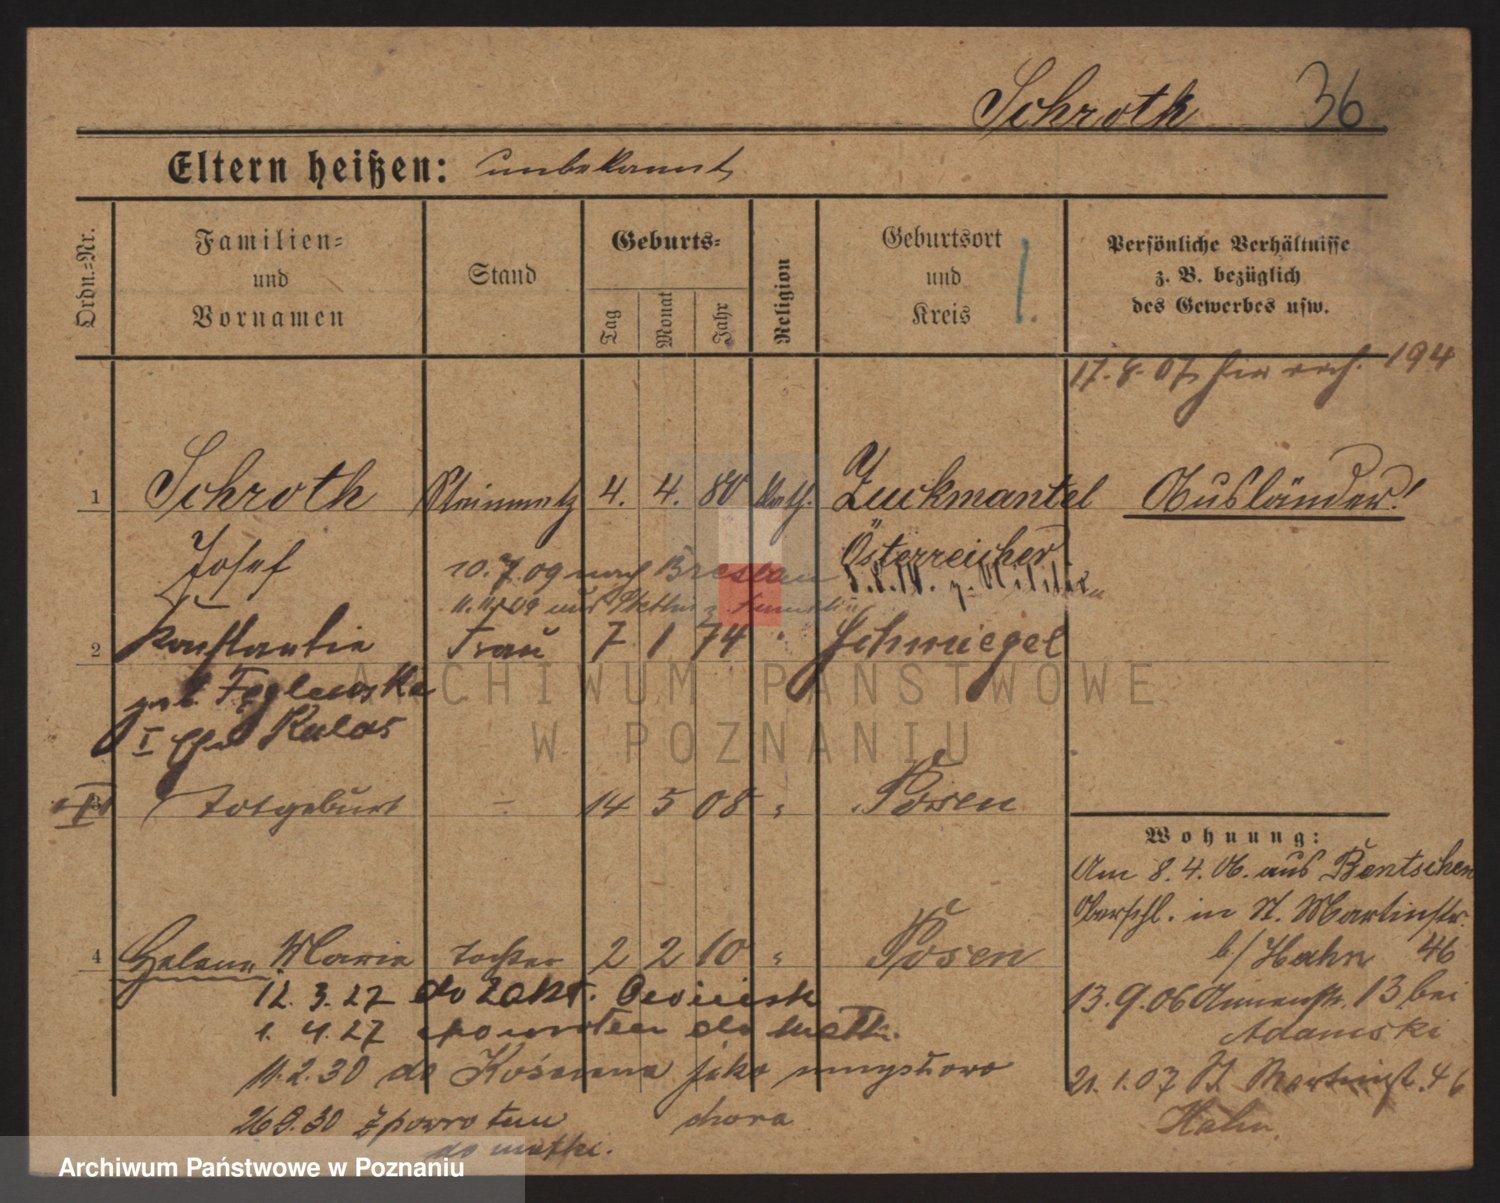 Schroth 36
Eltern heißen: unbekannt
Ordn.-Nr.
Familien-
und
Vornamen
Stand
Geburts-
Tag
Monat
Jahr
Religion
Geburtsort
und
Kreis
Persönliche Verhältnisse
z. B. bezüglich
des Gewerbes usw.
17. 8. 07 hier 194
1 Schroth Steinmetz 4. 4. 80 Kath. Zuckmantel Ausländer!
Josef Österreicher
10. 7. 09 nach Breslau
11. 11. 09 aus Stettin z.
2 Konstantia Frau 7 1 74 " Schmiegel
geb. Feglewska
I Ehe Kulas
3 Totgeburt – 14 5 08 " Posen
Wohnung:
Am 8. 4. 06. aus Bentschen
Oberschl. in St. Martinstr.
b/ Hahn 46
4 Helene Marie Tochter 2 2 10 " Posen
12. 3. 27 do Zakł. Owińsk
1. 4. 27 spowrotem do matki.
11. 2. 30 do Kościana jako umysłowo
chora
26 9. 30 z powrotem
do matki.
13. 9. 06 Annenstr. 13 bei
Adamski
21. 1. 07 St Martinst. 46
Hahn
ARCHIWUM PAŃSTWOWE
W POZNANIU
Archiwum Państwowe w Poznaniu